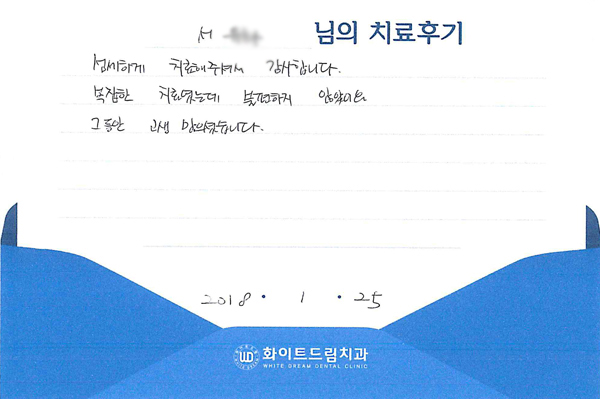 서 님의 치료후기
섬세하게 치료해주셔서 감사합니다.
복잡한 치료였는데 불편하지 않았어요
그동안 고생 많으셨습니다.
2018 · 1 · 25
WD 화이트드림치과
WHITE DREAM DENTAL CLINIC